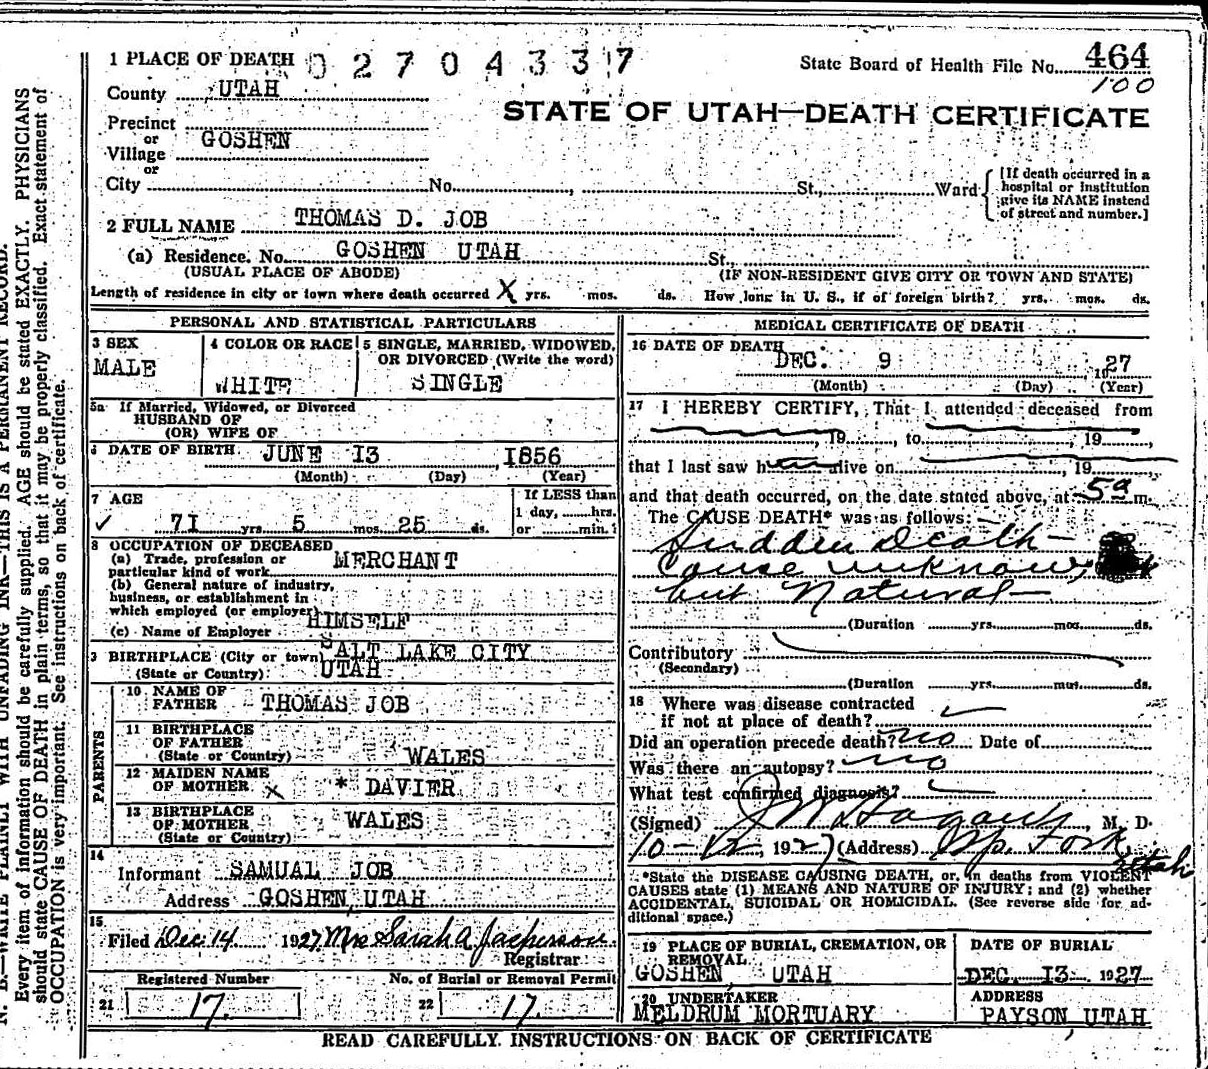 N. B.—WRITE PLAINLY WITH UNFADING INK—THIS IS A PERMANENT RECORD.
Every item of information should be carefully supplied. AGE should be stated EXACTLY. PHYSICIANS
should state CAUSE OF DEATH in plain terms, so that it may be properly classified. Exact statement of
OCCUPATION is very important. See instructions on back of certificate.
1 PLACE OF DEATH 02704337
State Board of Health File No. 464
100
County UTAH
STATE OF UTAH—DEATH CERTIFICATE
Precinct
or GOSHEN
Village
or
City No. , St., Ward
[If death occurred in a
hospital or institution
give its NAME instead
of street and number.]
2 FULL NAME THOMAS D. JOB
(a) Residence. No. GOSHEN UTAH St.
(USUAL PLACE OF ABODE) (IF NON-RESIDENT GIVE CITY OR TOWN AND STATE)
Length of residence in city or town where death occurred X yrs. mos. ds. How long in U. S., if of foreign birth? yrs. mos. ds.
PERSONAL AND STATISTICAL PARTICULARS
3 SEX
MALE
4 COLOR OR RACE
WHITE
5 SINGLE, MARRIED, WIDOWED,
OR DIVORCED (Write the word)
SINGLE
5a If Married, Widowed, or Divorced
HUSBAND OF
(OR) WIFE OF
6 DATE OF BIRTH JUNE 13, 1856
(Month) (Day) (Year)
7 AGE
✓ 71 yrs. 5 mos. 25 ds.
If LESS than
1 day, hrs.
or min.?
8 OCCUPATION OF DECEASED
(a) Trade, profession or
particular kind of work MERCHANT
(b) General nature of industry,
business, or establishment in
which employed (or employer)
HIMSELF
(c) Name of Employer
9 BIRTHPLACE (City or town) SALT LAKE CITY
(State or Country) UTAH
PARENTS
10 NAME OF
FATHER THOMAS JOB
11 BIRTHPLACE
OF FATHER
(State or Country) WALES
12 MAIDEN NAME
OF MOTHER X * DAVIER
13 BIRTHPLACE
OF MOTHER WALES
(State or Country)
14
Informant SAMUAL JOB
Address GOSHEN, UTAH
15
Filed Dec 14 1927 Mrs Sarah A. Jasperson
Registrar
Registered Number No. of Burial or Removal Permit
21 17. 22 17.
MEDICAL CERTIFICATE OF DEATH
16 DATE OF DEATH
DEC. 9 1927
(Month) (Day) (Year)
17 I HEREBY CERTIFY, That I attended deceased from
, 19 , to , 19 ,
that I last saw h alive on , 19
and that death occurred, on the date stated above, at 5 a m.
The CAUSE DEATH* was as follows:
Sudden Death—
Cause unknown,
but Natural—
(Duration yrs. mos. ds.
Contributory
(Secondary)
(Duration yrs. mos. ds.
18 Where was disease contracted
if not at place of death?
Did an operation precede death? no Date of
Was there an autopsy? no
What test confirmed diagnosis?
(Signed) , M. D.
10-12, 1927 (Address) Sp. Fork, Utah
*State the DISEASE CAUSING DEATH, or, in deaths from VIOLENT
CAUSES state (1) MEANS AND NATURE OF INJURY; and (2) whether
ACCIDENTAL, SUICIDAL OR HOMICIDAL. (See reverse side for ad-
ditional space.)
19 PLACE OF BURIAL, CREMATION, OR
REMOVAL
GOSHEN, UTAH
DATE OF BURIAL
DEC. 13 1927
20 UNDERTAKER
MELDRUM MORTUARY
ADDRESS
PAYSON, UTAH
READ CAREFULLY INSTRUCTIONS ON BACK OF CERTIFICATE